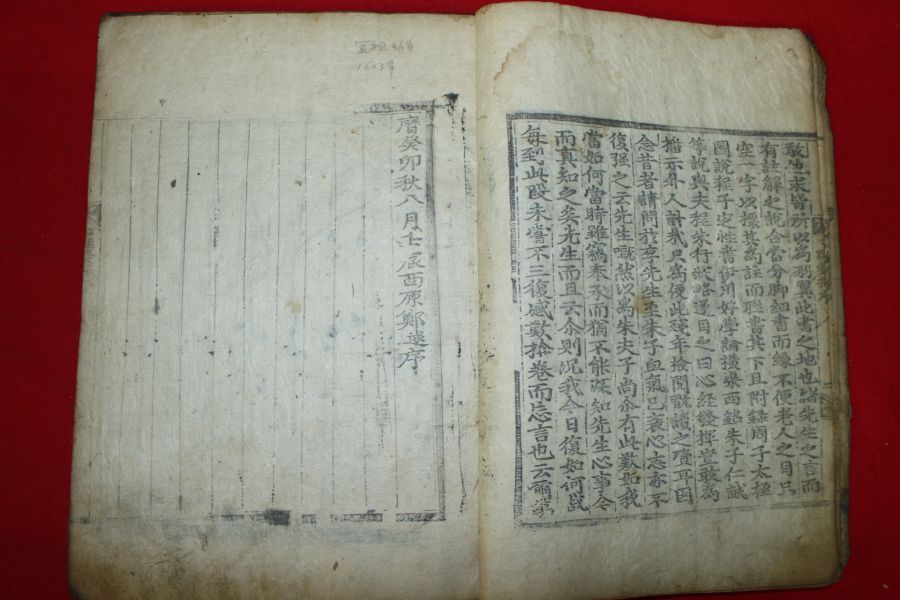 敢也求皆所以爲羽翼此書之地也諸先生之言而
有註解之說合當分脚細書而緣不便老人之目只
空一字以標其爲註而聯書其下且附錄周子太極
圖說程子定性書伊川好學論橫渠西銘朱子仁說
等說與夫程朱行狀略遂目之曰心經發揮豈敢爲
揩示外人計哉只爲便此殘年撿閱諷誦之資耳因
念昔者請問於李先生至朱子血氣已衰心志亦不
復强之云先生嘅然以爲朱夫子尚尒有此歎如我
當如何當時雖竊奉承而猶不能深知先生心事今
而真知之矣先生而且云尒則況我今日復如何哉
每到此段未嘗不三復感歎捨卷而忘言也云爾萬
曆癸卯秋八月壬辰西原鄭逑序
宣祖36年
1603年